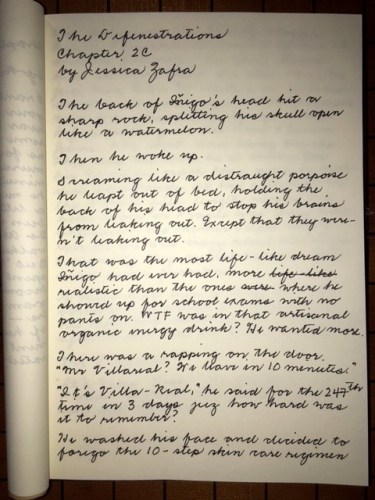 The Defenestrations
Chapter 2C
by Jessica Zafra
The back of Iñigo's head hit a
sharp rock, splitting his skull open
like a watermelon.
Then he woke up.
Screaming like a distraught porpoise
he leapt out of bed, holding the
back of his head to stop his brains
from leaking out. Except that they were-
n't leaking out.
That was the most life-like dream
Iñigo had ever had, more life-like
realistic than the ones where he
showed up for school exams with no
pants on. WTF was in that artisanal
organic energy drink? He wanted more.
There was a rapping on the door.
"Mr Villareal? We leave in 10 menutes."
"It's Villa-Real," he said for the 247th
time in 3 days jeez how hard was
it to remember?
He washed his face and decided to
forego the 10-step skin care regimen